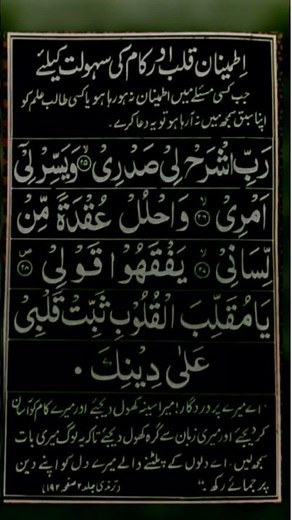 اطمینان قلب اور کام کی سہولت کیلئے
جب کسی مسئلے میں اطمینان نہ ہو رہا ہو یا کسی طالب علم کو
اپنا سبق سمجھ میں نہ آرہا ہو تو یہ دعا کرے۔
رَبِّ اشْرَحْ لِیْ صَدْرِیْ ﴿۲۵﴾ وَیَسِّرْ لِیْ
اَمْرِیْ ﴿۲۶﴾ وَاحْلُلْ عُقْدَةً مِّنْ
لِّسَانِیْ ﴿۲۷﴾ یَفْقَهُوْا قَوْلِیْ ﴿۲۸﴾
یَا مُقَلِّبَ الْقُلُوْبِ ثَبِّتْ قَلْبِیْ
عَلٰی دِیْنِكَ ۰
،،اے میرے پروردگار! میرا سینہ کھول دیجئے اور میرے کام کو آسان
کر دیجئے اور میری زبان سے گرہ کھول دیجئے تاکہ یہ لوگ میری بات
سمجھ لیں۔ اے دلوں کے پلٹنے والے میرے دل کو اپنے دین
پر جمائے رکھ۔،، (ترمذی جلد ۲ صفحہ ۱۹۲)